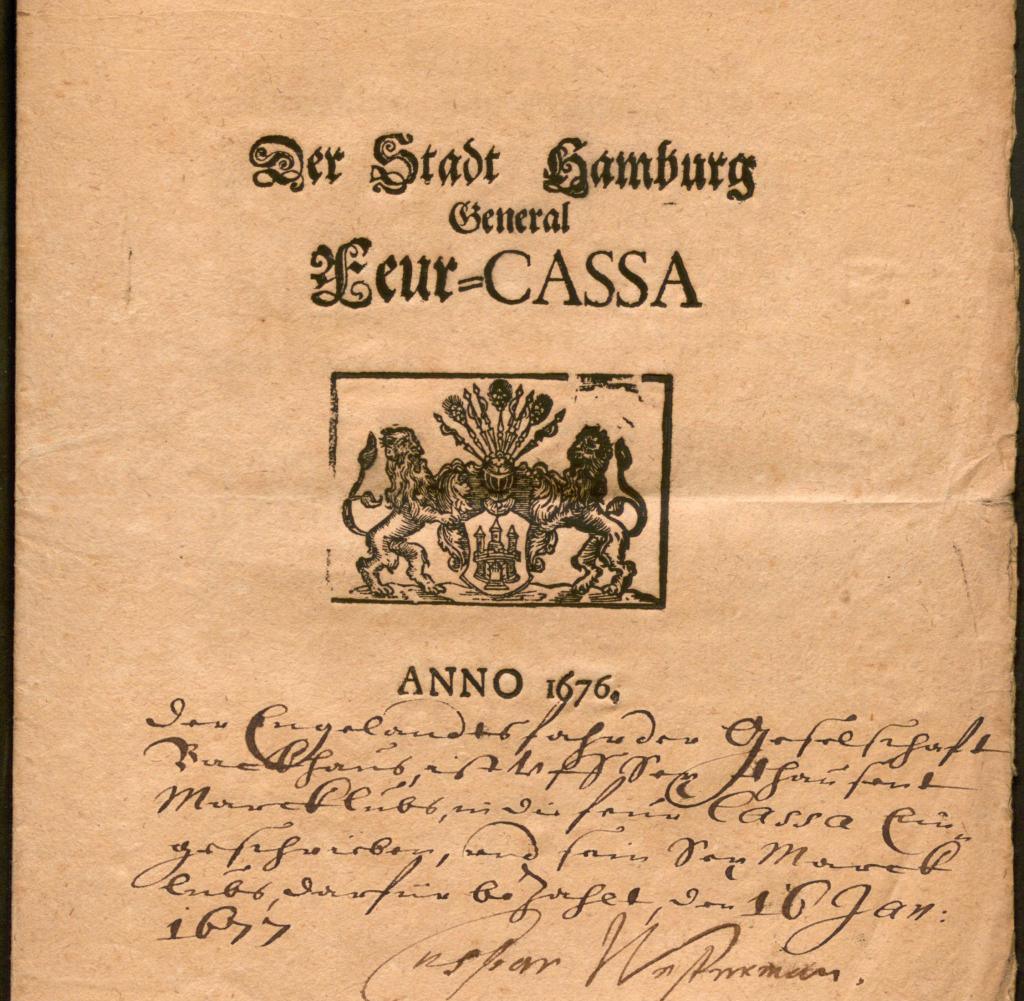 Der Stadt Hamburg
General
Feur-CASSA
ANNO 1676.
Der Engelandtsfahrder Geselschaft
Backhaus, ist uff Sex thausent
Marck lubs, in die feur Cassa Ein-
geschrieben, und sein Sex Marck
lubs, darfür bezahlt, den 16 Jan:
1677
Caspar Westerman.